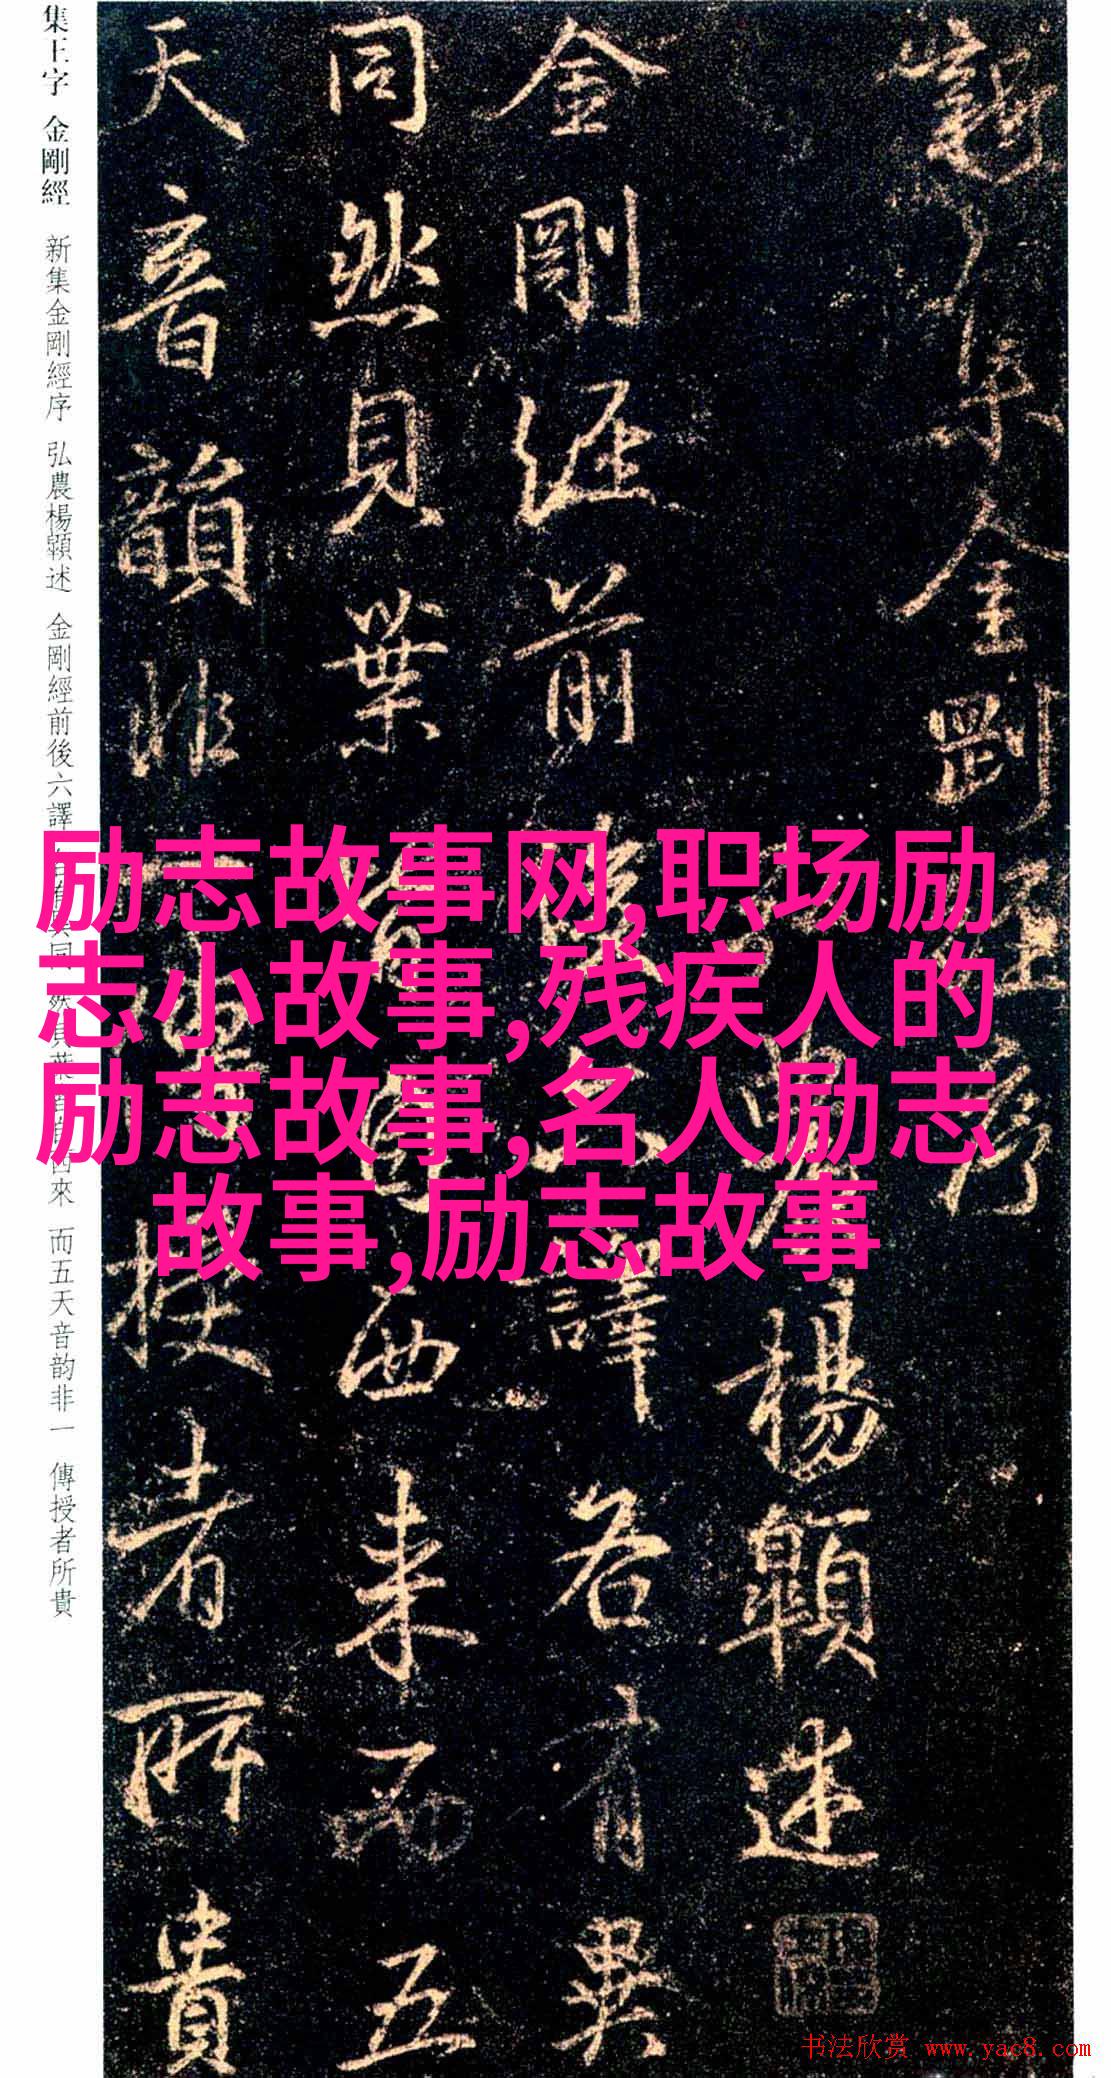 新集金剛經序
弘農楊顥述
金剛經前後六譯各有異
同然貝葉皆自西来而五
天音韻非一傳授者所貴
集王字 金剛經 新集金剛經序 弘農楊顥述 金剛經前後六譯各有異同 然貝葉皆自西來 而五天音韵非一 傳授者所貴
励志故事网,职场励
志小故事,残疾人的
励志故事,名人励志
故事,励志故事
书法欣赏 www.yac8.com